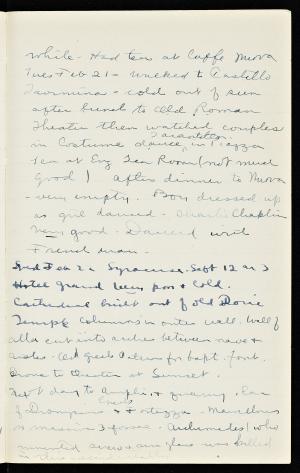 while - Had tea at Caffe Nuova
Tues Feb 21 - walked to Castello
Taormina - cold out of sun
after lunch to old Roman
Theater then watched couples
in costume dance tarantella in Piazza
Tea at Eng Tea Room (not much
good) after dinner to Nuova
- very empty. Boy dressed up
as girl danced - Charlie Chaplin
very good - Danced with
French man -
Wed Feb 22 Syracuse. Left 12 ar 3
Hotel grand very poor & cold.
Cathedral built out of old Doric
Temple columns in outer wall. Wall of
cella cut into arches between nave &
aisles. Old Greek for bapt. font.
Drove to theater at Sunset.
Next day to Amphi. & quarry. Ear
of Dionysius & Fortezza - Marvelous
Archimedes who
invented screw & glass was killed
in